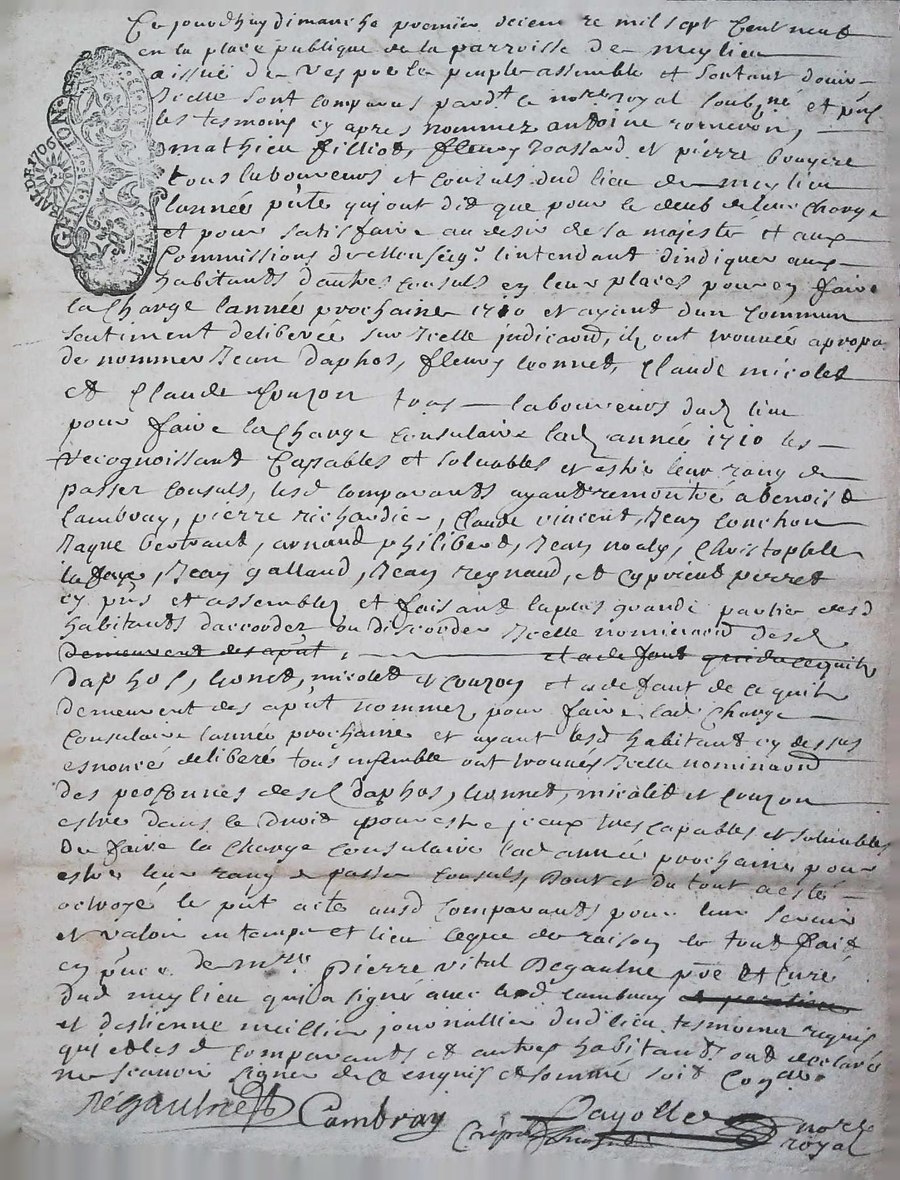 Ce jourdhuy dimanche premier decembre mil sept Cent neuf
en la place publique de la parroisse de meylieu
a issue de Vespre le peuple assemble et sortant douir
Icelle sont comparus pard.t le no.re royal soubz.né et pñs
les tesmoins cy apres nommez antoine
mathieu filliod, fleury et pierre bouyere
tous laboureurs et consuls dud lieu de meylieu
lannée pnte qui ont dit que pour le deub de leur charge
et pour satisfaire au desir de sa majesté et aux
Commissions de Monseig.r lintendant dindiquer aux
habitants dautres consuls en leur places pour en faire
la Charge lannée prochaine 1710 et ayant dun commun
sentiment deliberée sur Icelle , ils ont trouvée apropo
de nommer Jean daphos, fleury Lionnet, Claude micolet
et Claude Couzon tous laboureurs dud lieu
pour faire la Charge Consulaire lad année 1710 les
recognoissant Capables et soluables et estre leur rang de
passer Consuls, lesd comparants ayant remontré a benoist
Cambray, pierre richardier, Claude vincent, Jean Conchon
Jaque bertrant, arnaud philibert, Jean noaly, Christophle
lafaye, Jean galland, Jean reynaud, et cyprient perret
cy pñs et assemblez et faisant la plus grande partie desd
habitants daccorder ou discorder Icelle nominaõn desd
demeurent des apñt, et a de faut
daphos, Lionet, micolet et Couzon et a de faut de ce quils
demeurent des apñt nommez pour faire lad Charge
Consulaire lannée prochaine et ayant lesd habitant cy dessus
esnoncé deliberé tous ensemble ont trouvées Icelle nominaõn
des personnes desd daphos, Lionnet, micolet et Couzon
estre dans le droit pour estre jceux tres capables et soluables
De faire la Charge Consulaire lad année prochaine pour
estre leur rang de passer Consuls, Dont et du tout a esté
octroyé le pñt acte ausd Comparants pour leur servir
et valoir en temps et lieu ce que de raison le tout fait
en pñce de m.re pierre vital Régaulne pbre et Curé
dud meylieu qui a signé avec led Cambray
et destienne meillier journallier dud lieu tesmoins requis
qui et les d comparants et autres habitants ont declarés
ne scavoir signer de ce enquis et sommé soit Con.lé
Régaulne Cambray Payolle no.re
royal
GNATION.